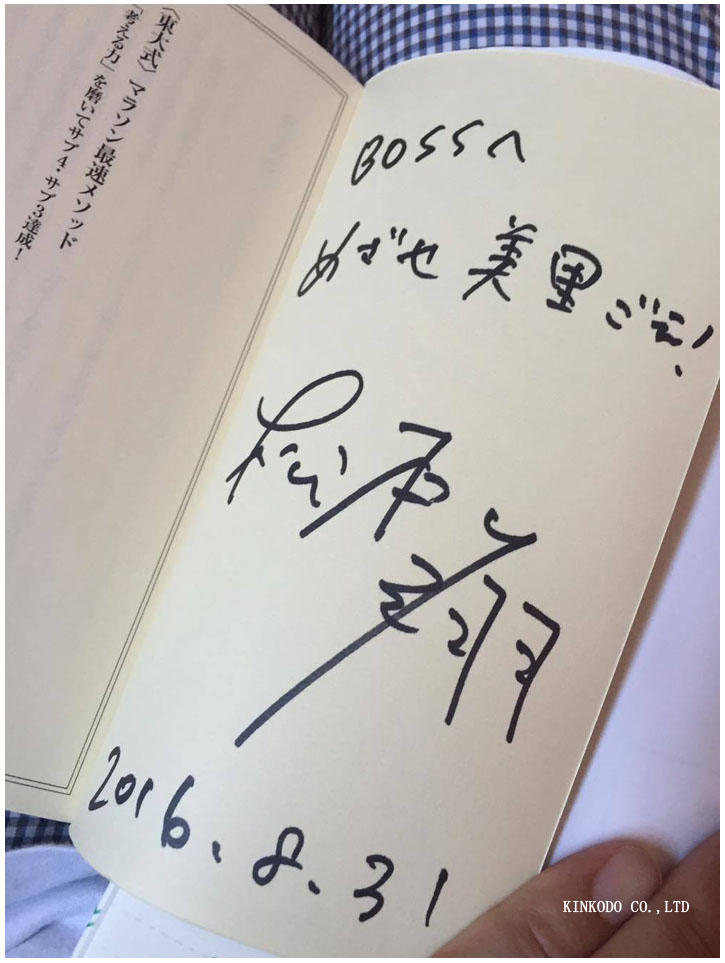 〈東大式〉マラソン最速メソッド
「考える力」を磨いてサブ4・サブ3達成！
BOSSへ
めざせ 美里ごえ！
松本翔
2016.8.31
KINKODO CO.,LTD